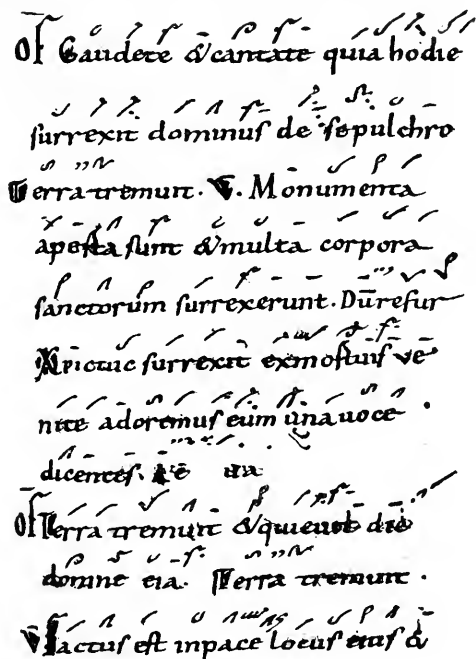 Of Gaudete & cantate quia hodie
surrexit dominus de sepulchro
Terra tremuit. V. Monumenta
aperta sunt & multa corpora
sanctorum surrexerunt. Dū resur
Xpictuc surrexit exmortuis ve
nite adoremus eum una uoce .
dicentes.
Of Terra tremuit & quieuit
domine eia. Terra tremuit .
V Factus est inpace locus eius &